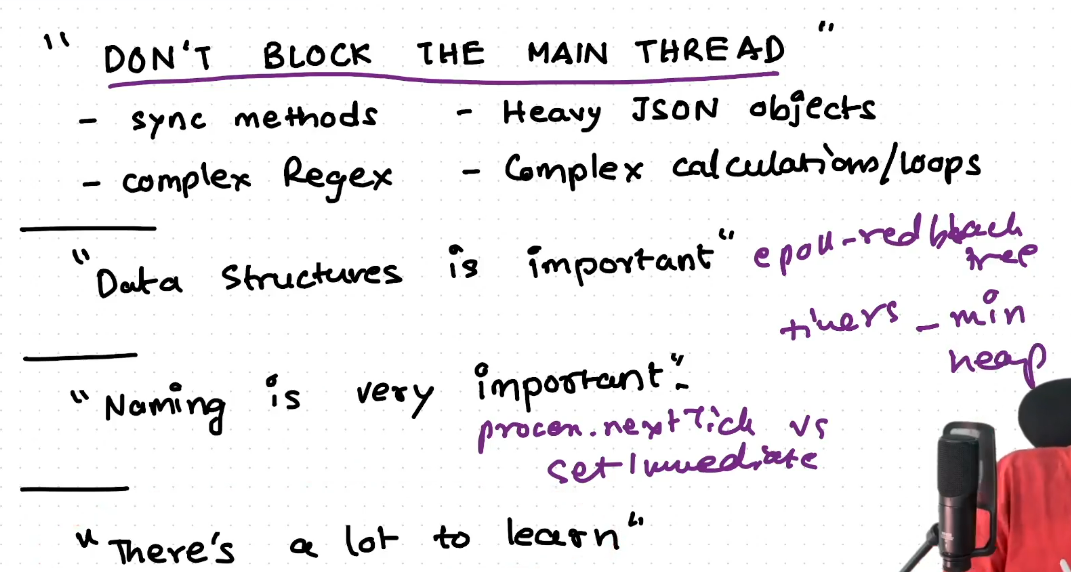 "DON'T BLOCK THE MAIN THREAD"
- sync methods - Heavy JSON objects
- complex Regex - Complex calculations/loops
"Data Structures is important" epoll - red black
tree
timers - min
heap
"Naming is very important":
process.nextTick vs
setImmediate
"There's a lot to learn"